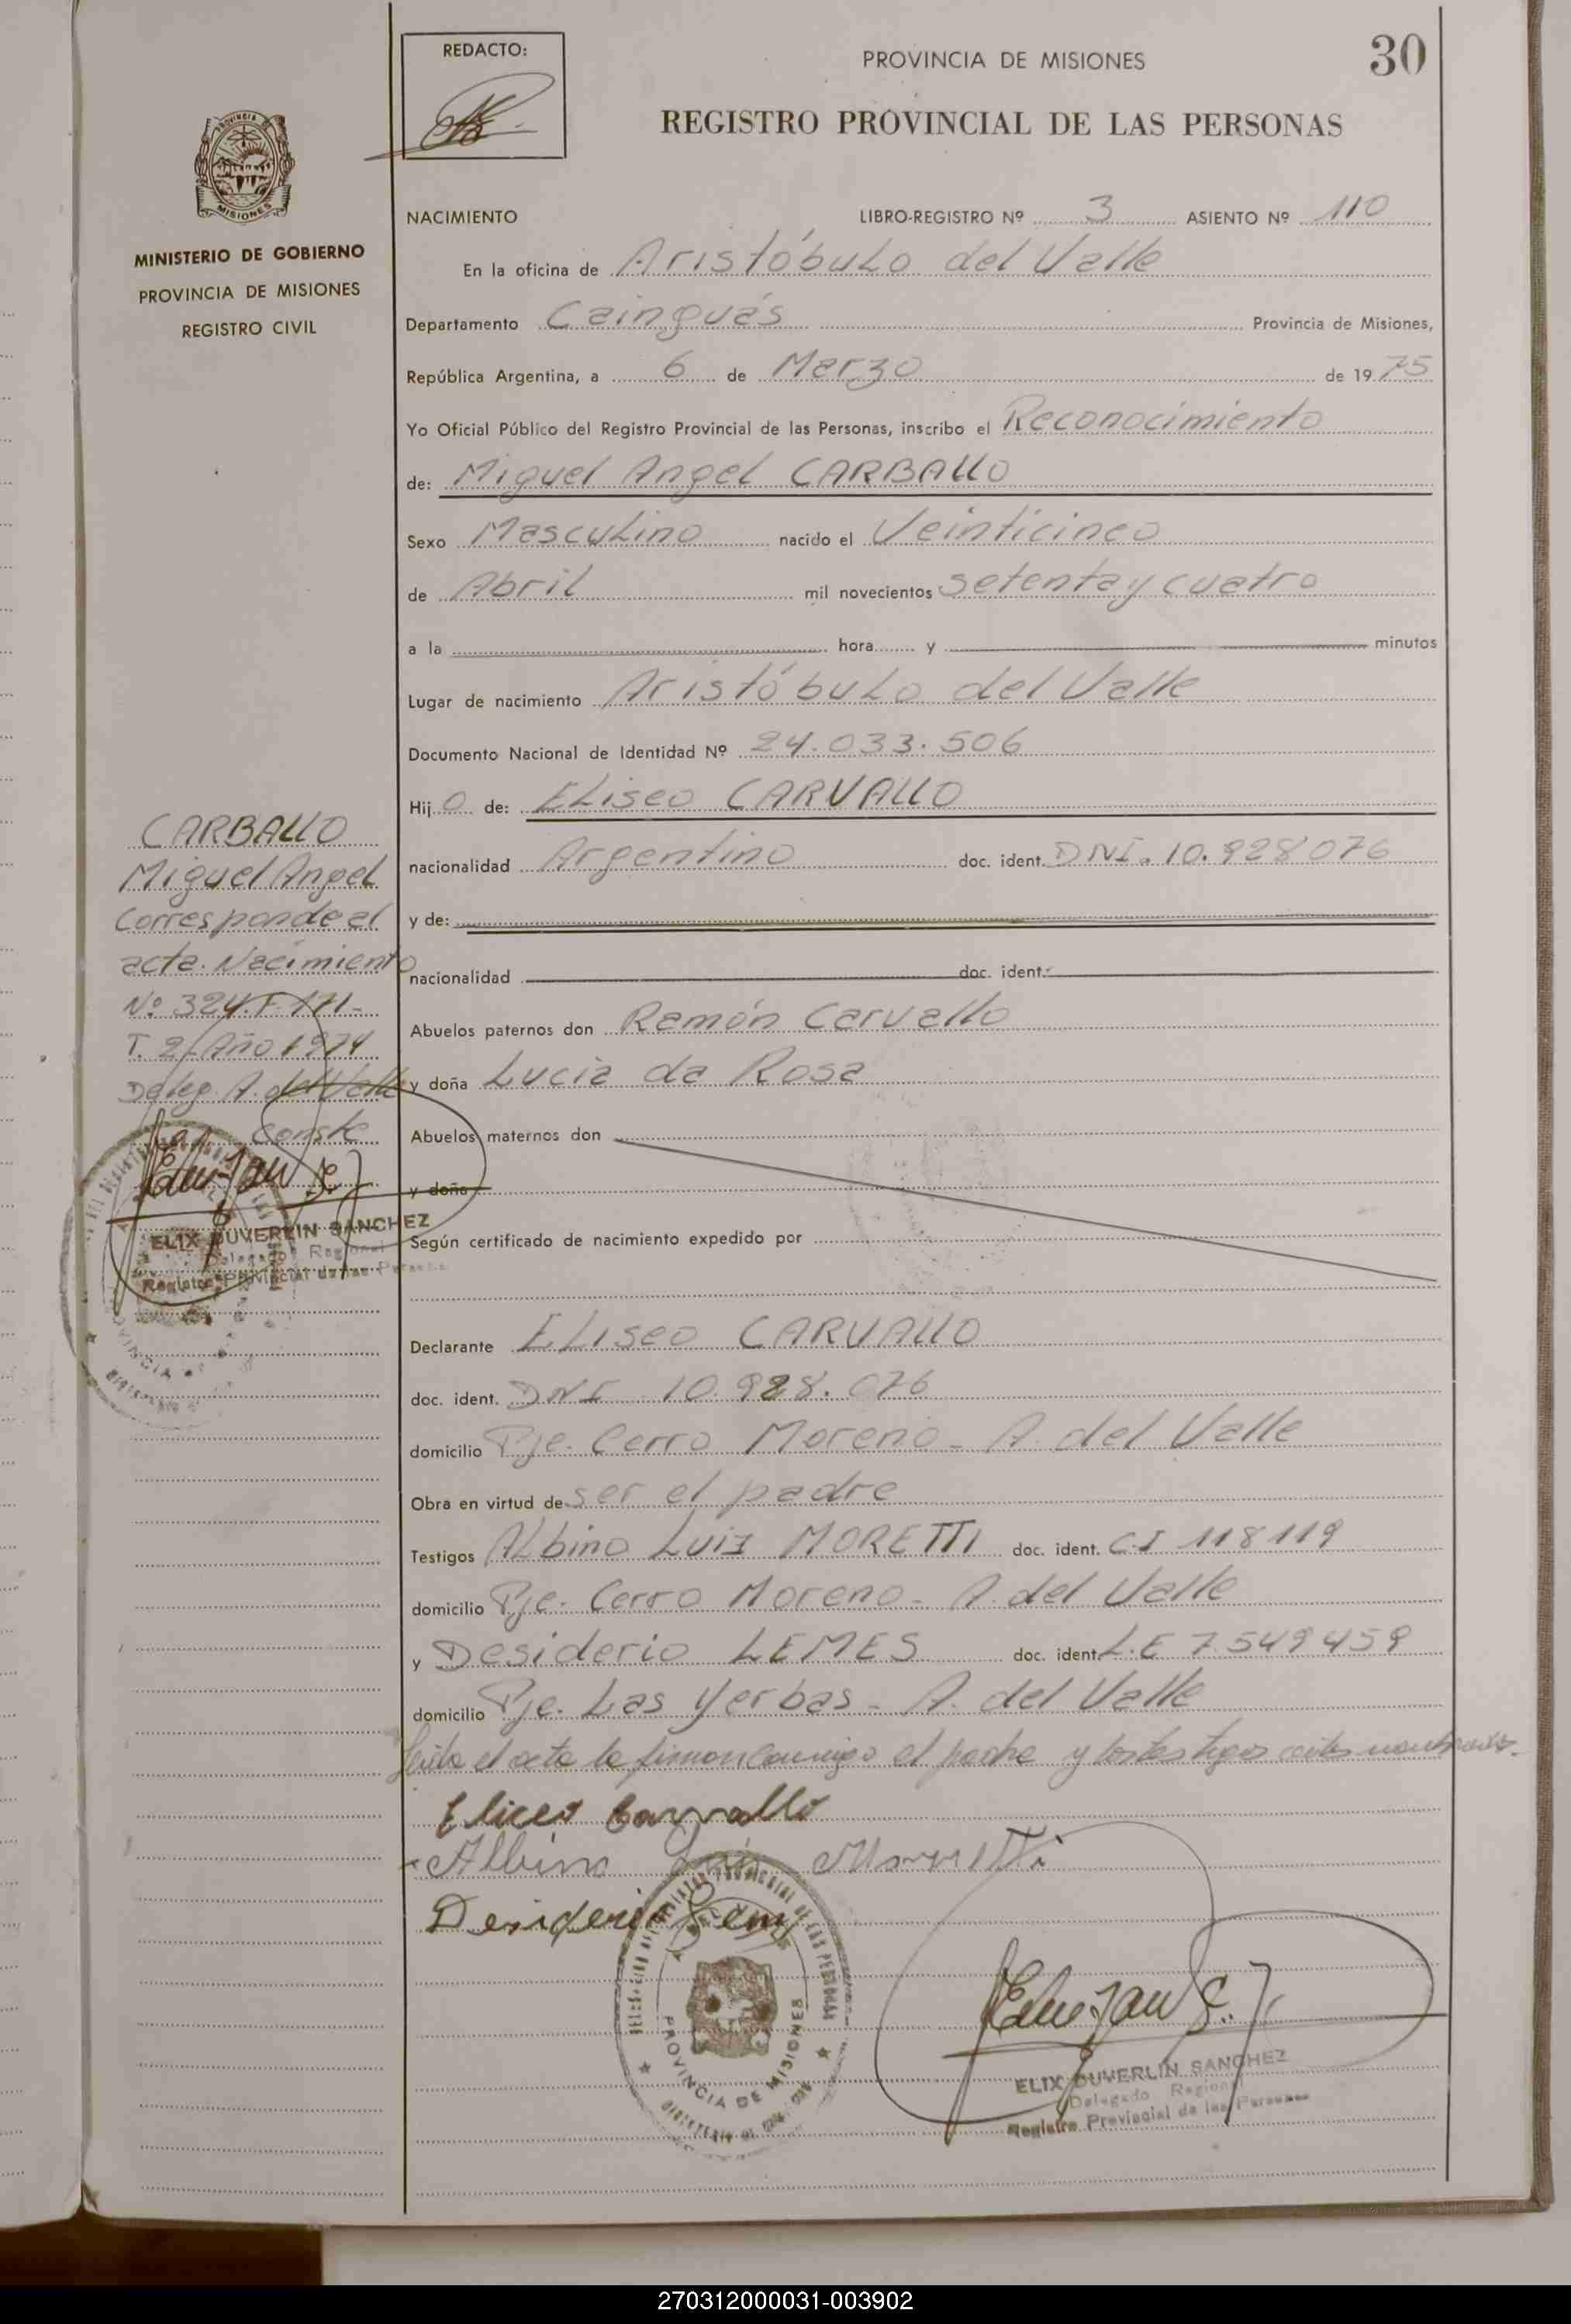 REDACTO:
PROVINCIA DE MISIONES
30
REGISTRO PROVINCIAL DE LAS PERSONAS
MISIONES
MINISTERIO DE GOBIERNO
PROVINCIA DE MISIONES
REGISTRO CIVIL
NACIMIENTO LIBRO-REGISTRO Nº 3 ASIENTO Nº 110
En la oficina de Aristóbulo del Valle
Departamento Cainguás Provincia de Misiones,
República Argentina, a 6 de Marzo de 1975
Yo Oficial Público del Registro Provincial de las Personas, inscribo el Reconocimiento
de: Miguel Angel CARBALLO
Sexo Masculino nacido el Veinticinco
de Abril mil novecientos setenta y cuatro
a la hora y minutos
Lugar de nacimiento Aristóbulo del Valle
Documento Nacional de Identidad Nº 24.033.506
Hijo de: Eliseo CARVALLO
nacionalidad Argentino doc. ident. DNI. 10.928076
y de:
nacionalidad doc. ident.
Abuelos paternos don Ramón Carvallo
y doña Lucia da Rosa
Abuelos maternos don
y doña
Según certificado de nacimiento expedido por
CARBALLO
Miguel Angel
Corresponde al
acta. Nacimiento
Nº 324. F. 171-
T. 2. Año 1974
Deleg. A. del Valle
Conste
ELIX DUVERLIN SANCHEZ
Delegado Regional
Registro Provincial de las Personas
Declarante Eliseo CARVALLO
doc. ident. DNI 10.928.076
domicilio Pje. Cerro Moreno - A. del Valle
Obra en virtud de ser el padre
Testigos Albino Luis MORETTI doc. ident. C.I 118119
domicilio Pje. Cerro Moreno - A. del Valle
y Desiderio LEMES doc. ident. L.E 7.549459
domicilio Pje. Las Yerbas - A. del Valle
el acta la firman conmigo el padre y los testigos
Eliceo Carvallo
Albino Luis Morretti
Desiderio Lemes
PROVINCIA DE MISIONES
ELIX DUVERLIN SANCHEZ
Delegado Regional
Registro Provincial de las Personas
270312000031-003902